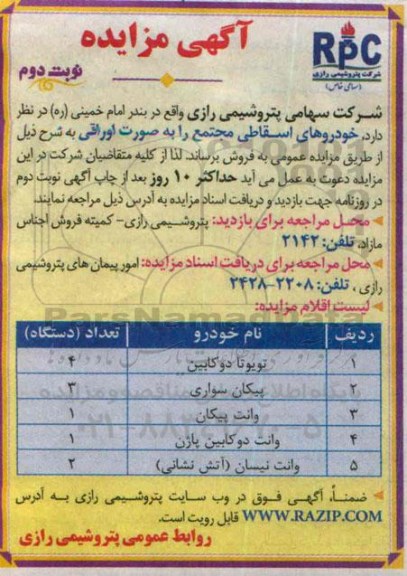 RPC
شرکت پتروشیمی رازی
(سهامی خاص)
آگهی مزایده
نوبت دوم
شـرکت سهامی پتروشیمی رازی واقع در بندر امام خمینی (ره) در نظر
دارد، خودروهای اسـقاطی مجتمع را به صورت اوراقی به شرح ذیل
از طریق مزایده عمومی به فروش برساند. لذا از کلیه متقاضیان شرکت در این
مزایده دعوت به عمل می آید حداکثر ۱۰ روز بعد از چاپ آگهی نوبت دوم
در روزنامه جهت بازدید و دریافت اسناد مزایده به آدرس ذیل مراجعه نمایند.
محـل مراجعه برای بازدید: پتروشـیمی رازی- کمیته فروش اجناس
مازاد، تلفن: ۲۱۴۲
محل مراجعه برای دریافت اسناد مزایده: امور پیمان های پتروشیمی
رازی ، تلفن: ۲۲۰۸-۲۴۲۸
لیست اقلام مزایده:
ردیف نام خودرو تعداد (دستگاه)
۱ تویوتا دوکابین ۴
۲ پیکان سواری ۳
۳ وانت پیکان ۱
۴ وانت دوکابین پاژن ۱
۵ وانت نیسان (آتش نشانی) ۲
ضمنـاً، آگهـی فـوق در وب سـایت پتروشـیمی رازی بـه آدرس
WWW.RAZIP.COM قابل رویت است.
روابط عمومی پتروشیمی رازی
ParsNamadData